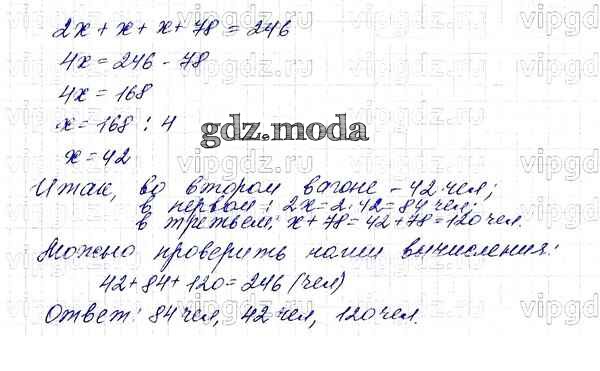 2х + х + х + 78 = 246
4х = 246 - 78
4х = 168
х = 168 : 4
gdz.moda
х = 42
Итак, во втором вагоне - 42 чел;
в первом: 2х = 2·42 = 84 чел;
в третьем: х + 78 = 42 + 78 = 120 чел.
Можно проверить наши вычисления:
42 + 84 + 120 = 246 (чел)
Ответ: 84 чел, 42 чел, 120 чел.
vipgdz.ru